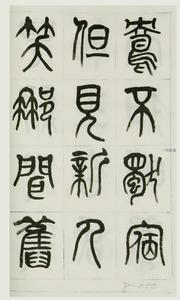 鴦不獨宿
但見新人
笑那聞舊